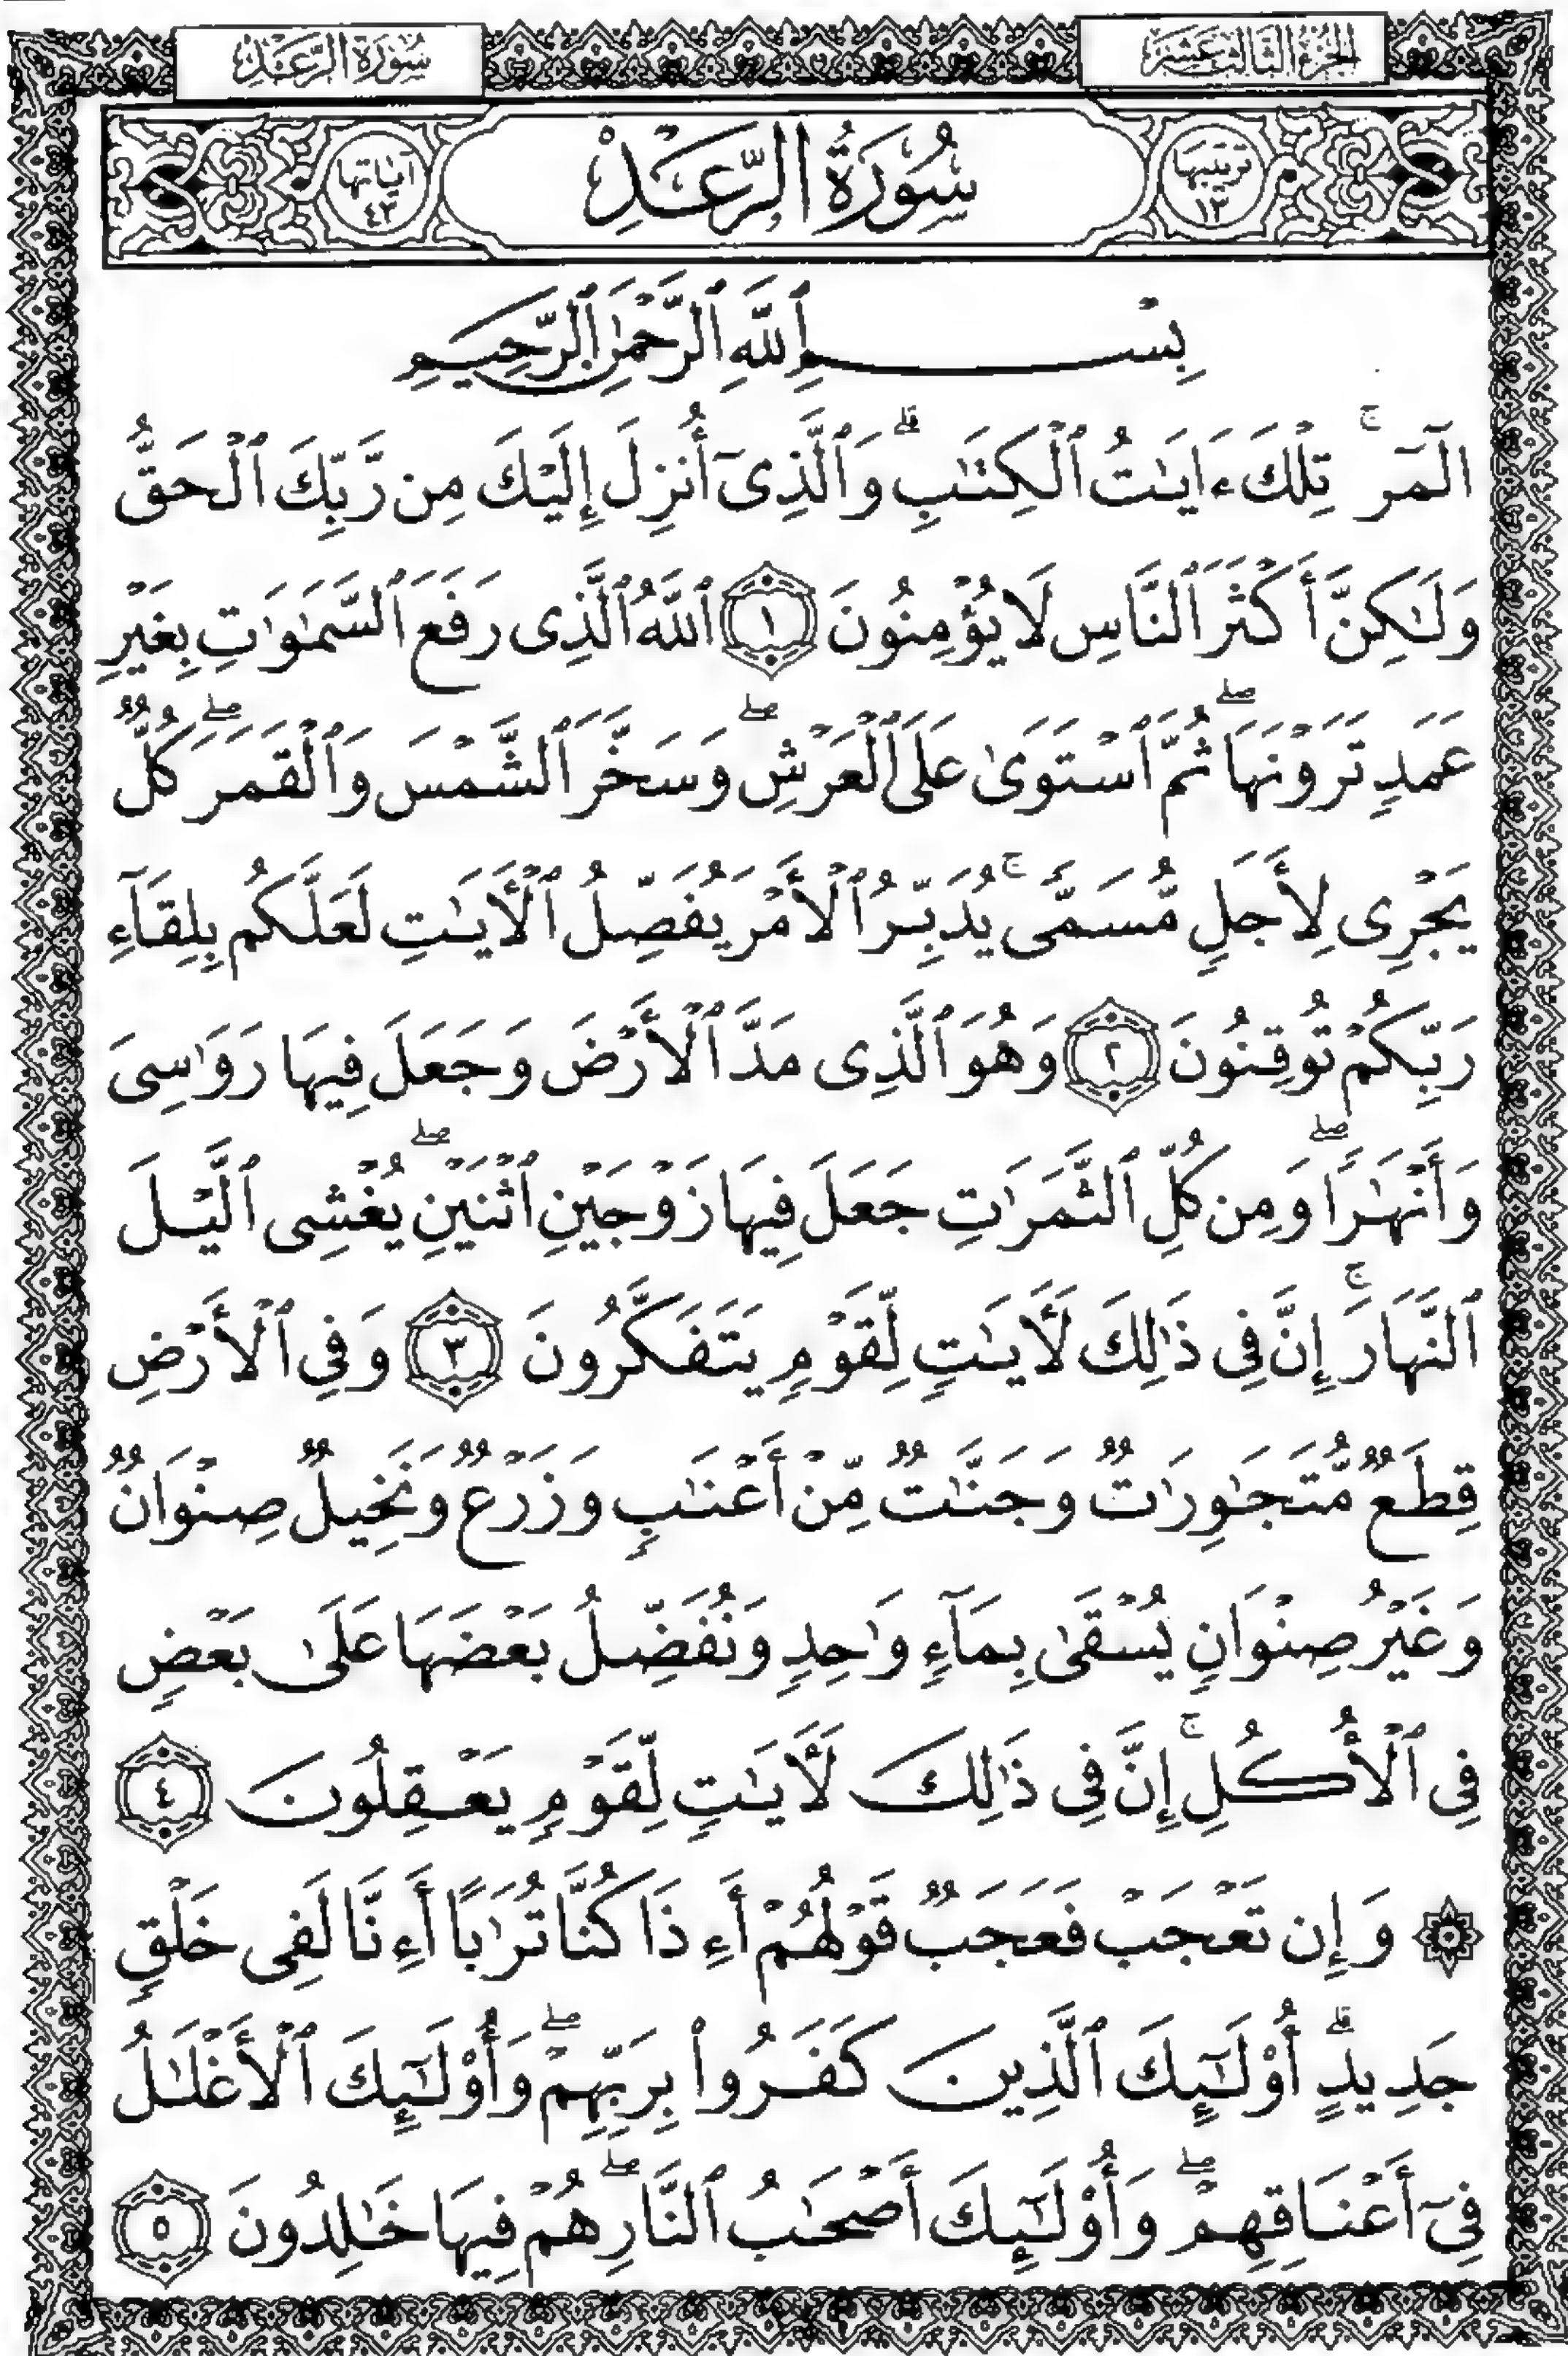 الجزء الثالث عشر
سُورَةُ الرَّعْدِ
ترتيبها ١٣
سُورَةُ الرَّعْدِ
آياتها ٤٣
بِسْمِ ٱللَّهِ ٱلرَّحْمَٰنِ ٱلرَّحِيمِ
الٓمٓرۚ تِلْكَ ءَايَٰتُ ٱلْكِتَٰبِۗ وَٱلَّذِىٓ أُنزِلَ إِلَيْكَ مِن رَّبِّكَ ٱلْحَقُّ
وَلَٰكِنَّ أَكْثَرَ ٱلنَّاسِ لَا يُؤْمِنُونَ ١ ٱللَّهُ ٱلَّذِى رَفَعَ ٱلسَّمَٰوَٰتِ بِغَيْرِ
عَمَدٍ تَرَوْنَهَاۖ ثُمَّ ٱسْتَوَىٰ عَلَى ٱلْعَرْشِۖ وَسَخَّرَ ٱلشَّمْسَ وَٱلْقَمَرَۖ كُلٌّ
يَجْرِى لِأَجَلٍ مُّسَمًّىۚ يُدَبِّرُ ٱلْأَمْرَ يُفَصِّلُ ٱلْأَيَٰتِ لَعَلَّكُم بِلِقَآءِ
رَبِّكُمْ تُوقِنُونَ ٢ وَهُوَ ٱلَّذِى مَدَّ ٱلْأَرْضَ وَجَعَلَ فِيهَا رَوَٰسِىَ
وَأَنْهَٰرًاۖ وَمِن كُلِّ ٱلثَّمَرَٰتِ جَعَلَ فِيهَا زَوْجَيْنِ ٱثْنَيْنِۖ يُغْشِى ٱلَّيْلَ
ٱلنَّهَارَۚ إِنَّ فِى ذَٰلِكَ لَأَيَٰتٍ لِّقَوْمٍ يَتَفَكَّرُونَ ٣ وَفِى ٱلْأَرْضِ
قِطَعٌ مُّتَجَٰوِرَٰتٌ وَجَنَّٰتٌ مِّنْ أَعْنَٰبٍ وَزَرْعٌ وَنَخِيلٌ صِنْوَانٌ
وَغَيْرُ صِنْوَانٍ يُسْقَىٰ بِمَآءٍ وَٰحِدٍ وَنُفَضِّلُ بَعْضَهَا عَلَىٰ بَعْضٍ
فِى ٱلْأُكُلِۚ إِنَّ فِى ذَٰلِكَ لَأَيَٰتٍ لِّقَوْمٍ يَعْقِلُونَ ٤
۞ وَإِن تَعْجَبْ فَعَجَبٌ قَوْلُهُمْ أَءِذَا كُنَّا تُرَٰبًا أَءِنَّا لَفِى خَلْقٍ
جَدِيدٍۗ أُو۟لَٰٓئِكَ ٱلَّذِينَ كَفَرُوا۟ بِرَبِّهِمْۖ وَأُو۟لَٰٓئِكَ ٱلْأَغْلَٰلُ
فِىٓ أَعْنَاقِهِمْۖ وَأُو۟لَٰٓئِكَ أَصْحَٰبُ ٱلنَّارِۖ هُمْ فِيهَا خَٰلِدُونَ ٥